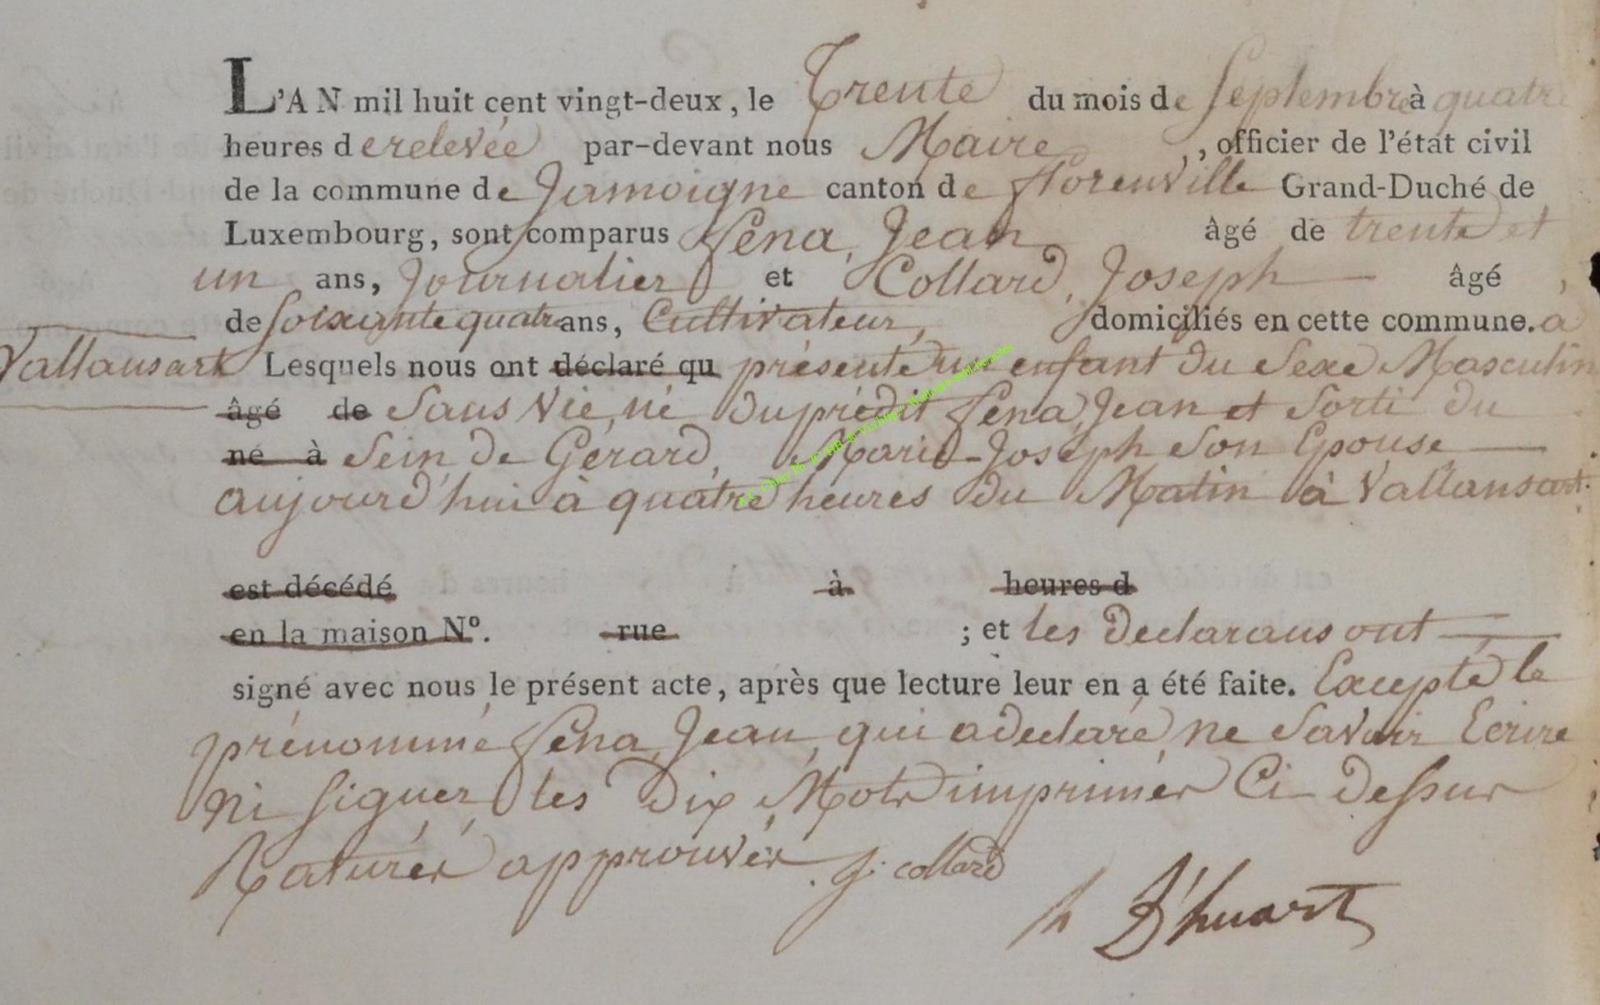 L'AN mil huit cent vingt-deux, le Trente du mois de Septembre à quatre
heures de relevée par-devant nous Maire, officier de l'état civil
de la commune de Jamoigne canton de florenville Grand-Duché de
Luxembourg, sont comparus Séna, Jean âgé de trente et
un ans, Journalier et Collard, Joseph âgé
de soixante quatre ans, Cultivateur, domiciliés en cette commune. a
Vallansart Lesquels nous ont déclaré qu présenté un enfant du Sexe Masculin
âgé de Sans Vie, né du prédit Séna, Jean et Sorti du
né à Sein de Gérard, Marie-Joseph Son Epouse
aujourd'hui à quatre heures du Matin à Vallansart.
est décédé à heures d
en la maison N°. rue ; et les declarans ont
signé avec nous le présent acte, après que lecture leur en a été faite. Excepté le
prénommé Séna, Jean, qui a declaré ne Savoir Ecrire
ni signer, les Dix Mots imprimés Ci dessus
Raturés approuvés. J. collard
h D'huart